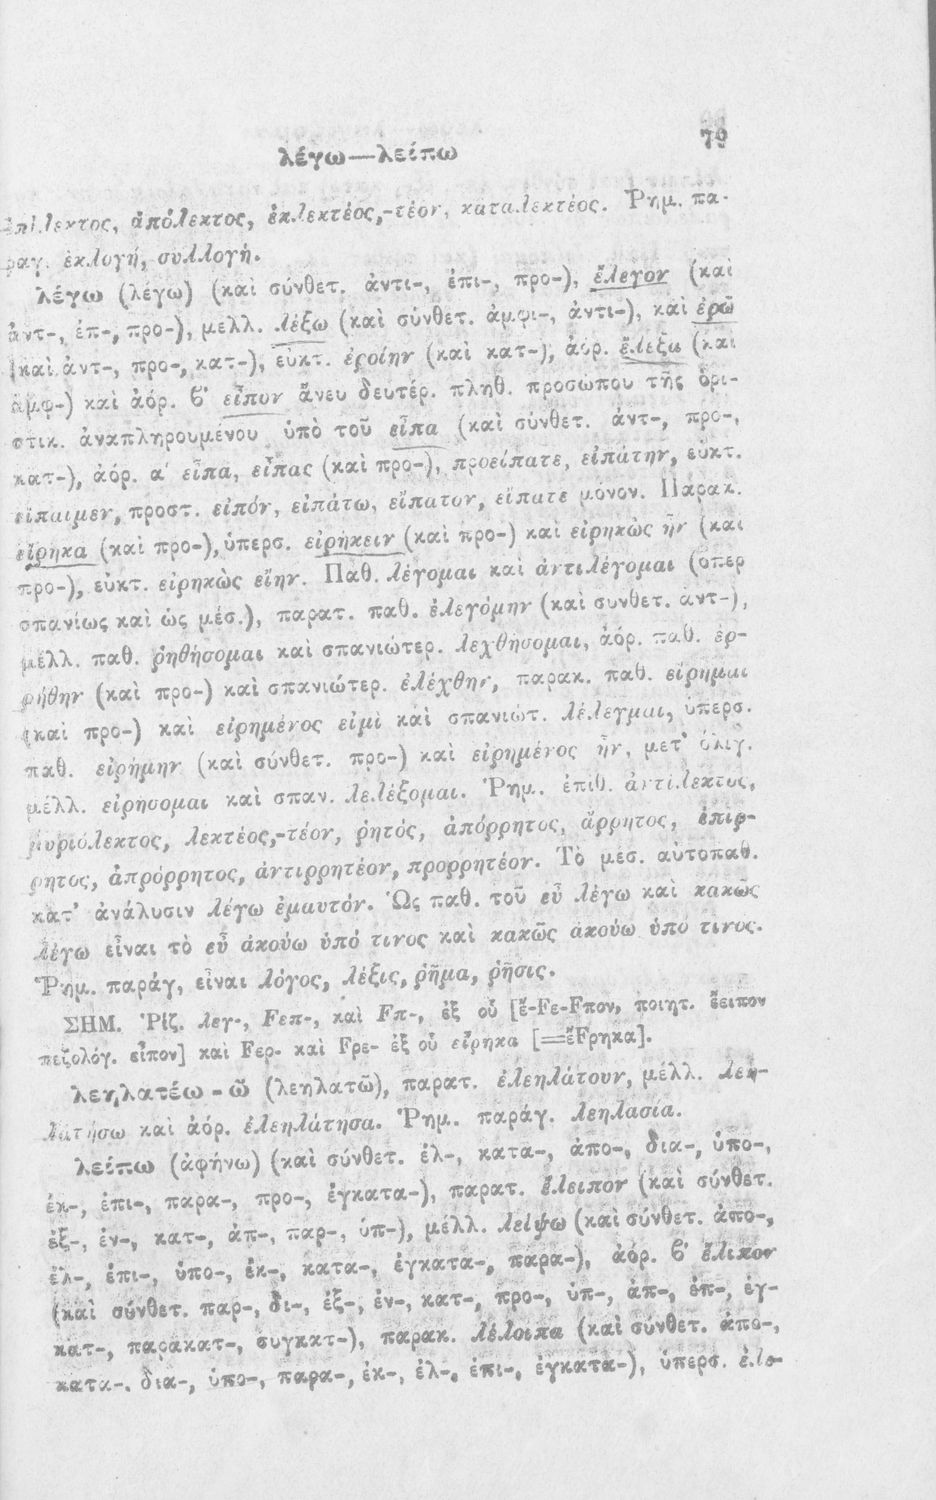 λέγω—λείπω 79
ἐπίλεκτος, ἀπόλεκτος, ἐκλεκτέος,-τέον, καταλεκτέος. Ῥημ. πα-
ραγ. ἐκλογή, συλλογή.
λέγω (λέγω) (καὶ σύνθετ. ἀντι-, ἐπι-, προ-), ἔλεγον (καὶ
ἀντ-, ἐπ-, προ-), μελλ. λέξω (καὶ σύνθετ. ἀμφι-, ἀντι-), καὶ ἐρῶ
(καὶ ἀντ-, προ-, κατ-), εὐκτ. ἐροίην (καὶ κατ-), ἀόρ. ἔλεξα (καὶ
ἀμφ-) καὶ ἀόρ. ϐ' εἶπον ἄνευ δευτέρ. πληθ. προσώπου τῆς ὁρι-
στικ. ἀναπληρουμένου ὑπὸ τοῦ εἶπα (καὶ σύνθετ. ἀντ-, προ-,
κατ-), ἀόρ. α' εἶπα, εἶπας (καὶ προ-), προείπατε, εἰπάτην, εὐκτ.
εἴπαιμεν, προστ. εἰπόν, εἰπάτω, εἴπατον, εἴπατε μόνον. Παρακ.
εἴρηκα (καὶ προ-), ὑπερσ. εἰρήκειν (καὶ προ-) καὶ εἰρηκὼς ἦν (καὶ
προ-), εὐκτ. εἰρηκὼς εἴην. Παθ. λέγομαι καὶ ἀντιλέγομαι (ὅπερ
σπανίως καὶ ὡς μέσ.), παρατ. παθ. ἐλεγόμην (καὶ συνθετ. ἀντ-),
μέλλ. παθ. ῥηθήσομαι καὶ σπανιώτερ. λεχθήσομαι, ἀόρ. παθ. ἐρ-
ρήθην (καὶ προ-) καὶ σπανιώτερ. ἐλέχθην, παρακ. παθ. εἴρημαι
(καὶ προ-) καὶ εἰρημένος εἰμὶ καὶ σπανιώτ. λέλεγμαι, ὑπερσ.
παθ. εἰρήμην (καὶ σύνθετ. προ-) καὶ εἰρημένος ἦν, μετ' ὀλιγ.
μέλλ. εἰρήσομαι καὶ σπαν. λελέξομαι. Ῥημ. ἐπίθ. ἀντίλεκτος,
μυριόλεκτος, λεκτέος,-τέον, ῥητός, ἀπόρρητος, ἄρρητος, ἐπίρ-
ρητος, ἀπρόρρητος, ἀντιρρητέον, προρρητέον. Τὸ μέσ. αὐτοπαθ.
κατ' ἀνάλυσιν λέγω ἐμαυτόν. Ὡς παθ. τοῦ εὖ λέγω καὶ κακῶς
λέγω εἶναι τὸ εὖ ἀκούω ὑπό τινος καὶ κακῶς ἀκούω ὑπό τινος.
Ῥημ. παράγ, εἶναι λόγος, λέξις, ῥῆμα, ῥῆσις.
ΣΗΜ. Ῥίζ. λεγ-, Fεπ-, καὶ Fπ-, ἐξ οὗ [ἔ-Fε-Fπον, ποιητ. ἔειπον
πεζολόγ. εἶπον] καὶ Fερ- καὶ Fρε- ἐξ οὗ εἴρηκα [=ἔFρηκα].
λεηλατέω - ῶ (λεηλατῶ), παρατ. ἐλεηλάτουν, μέλλ. λεη-
λατήσω καὶ ἀόρ. ἐλεηλάτησα. Ῥημ. παράγ. λεηλασία.
λείπω (ἀφήνω) (καὶ σύνθετ. ἐλ-, κατα-, ἀπο-, δια-, ὑπο-,
ἐκ-, ἐπι-, παρα-, προ-, ἐγκατα-), παρατ. ἔλειπον (καὶ σύνθετ.
ἐξ-, ἐν-, κατ-, ἀπ-, παρ-, ὑπ-), μέλλ. λείψω (καὶ σύνθετ. ἀπο-,
ἐλ-, ἐπι-, ὑπο-, ἐκ-, κατα-, ἐγκατα-, παρα-), ἀόρ. ϐ' ἔλιπον
(καὶ σύνθετ. παρ-, δι-, ἐξ-, ἐν-, κατ-, προ-, ὑπ-, ἀπ-, ἐπ-, ἐγ-
κατ-, παρακατ-, συγκατ-), παρακ. λέλοιπα (καὶ σύνθετ. ἀπο-,
κατα-, δια-, ὑπο-, παρα-, ἐκ-, ἐλ-, ἐπι-, ἐγκατα-), ὑπερσ. ἐλε-